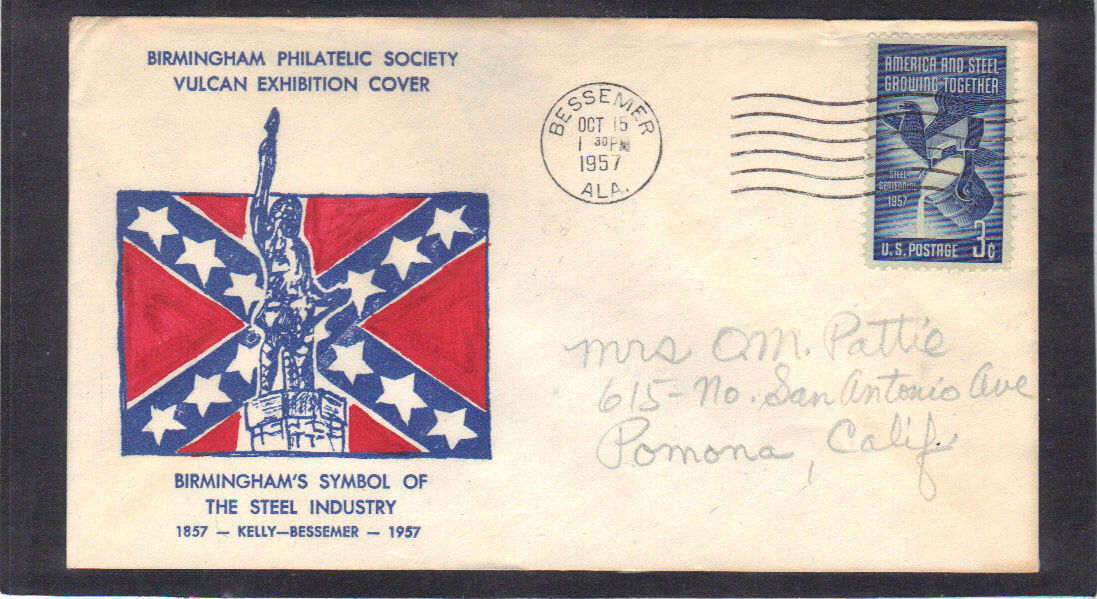 BIRMINGHAM PHILATELIC SOCIETY
VULCAN EXHIBITION COVER
BIRMINGHAM'S SYMBOL OF
THE STEEL INDUSTRY
1857 — KELLY—BESSEMER — 1957
BESSEMER
OCT 15
1 30 PM
1957
ALA.
AMERICA AND STEEL
GROWING TOGETHER
STEEL
CENTENNIAL
1957
U.S. POSTAGE 3¢
Mrs O.M. Pattie
615- No. San Antonio Ave
Pomona, Calif.